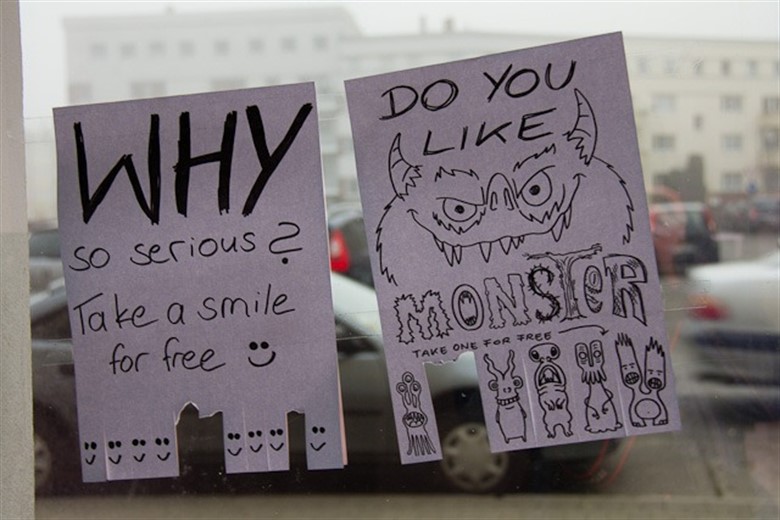 WHY
so serious?
Take a smile
for free
DO YOU
LIKE
MONSTER
TAKE ONE FOR FREE